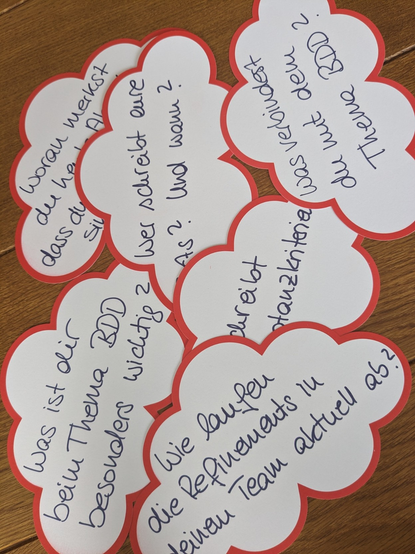 Woran merkst
du heute
dass du
Wer schreibt eure
As? Und wann?
Was verbindet
du mit dem
Thema BDD?
chreibt
tanzkriteria
Was ist dir
beim Thema BDD
besonders wichtig?
Wie laufen
die Refinements in
deinem Team aktuell ab?